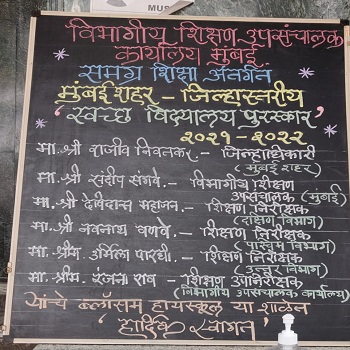 MUS
विभागीय शिक्षण उपसंचालक
कार्यालय मुंबई
समग्र शिक्षा अंतर्गत
मुंबई शहर - जिल्हास्तरीय
'स्वच्छ विद्यालय पुरस्कार'
२०२१ - २०२२
मा. श्री राजीव निवतकर - जिल्हाधिकारी
(मुंबई शहर)
मा. श्री संदीप संगवे. - विभागीय शिक्षण
उपसंचालक (मुंबई)
मा. श्री देविदास महाजन - शिक्षण निरीक्षक
(दक्षिण विभाग)
मा. श्री नवनाथ वणवे. - शिक्षण निरीक्षक
(पश्चिम विभाग)
मा. श्रीम. उर्मिला पारधी. - शिक्षण निरीक्षक
(उत्तर विभाग)
मा. श्रीम. रंजना राव - शिक्षण उपनिरीक्षक
(विभागीय उपसंचालक कार्यालय)
यांचे ब्लॉसम हायस्कूल या शाळेत
'हार्दिक स्वागत'